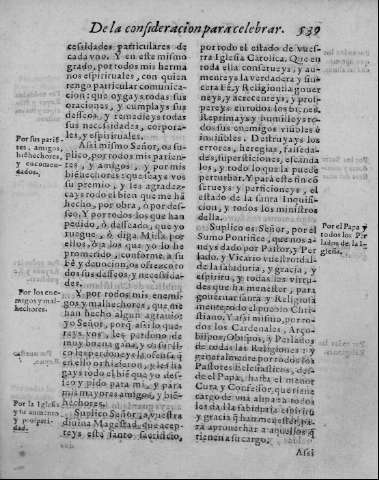 De la consideracion para celebrar. 539
cessidades particulares de
cada vno. Y en este mismo
grado, por todos mis herma
nos espirituales, con quien
tengo particular comunica-
cion: que oygays todas sus
oraciones, y cumplays sus
desseos, y remedieys todas
sus necessidades, corpora-
les, y espirituales.
Por sus parië
tes, amigos,
biēhechores,
y encomen-
dados.
Assi mismo Señor, os su-
plico, por todos mis parien-
tes, y amigos, y por mis
biēhechores: que deys vos
su premio, y les agradez-
cays todo el bien que me hā
hecho, por obra, ó por des-
seo. Y por todos los que han
pedido, ó desseado, que yo
ruegue, ó diga Missa por
ellos, ó a los que yo lo he
prometido, conforme a su
Fè, y deuocion, os ofrezco to
dos sus desseos y necessida-
des.
Por los ene-
migos y mal
hechores.
Y por todos mis enemi-
gos y malhechores, que me
han hecho algun agrauio:
yo Señor, porq̄ assi lo que-
reys vos, les perdono de
muy buena gana, y os supli-
co les perdoneys la ofensa q̄
en ello os hizieron, y les da
reys todo el biē que yo des-
seo y pido para mi, y para
mis mayores amigos, y biē
hechores.
Por la Iglesia
y su aumento
y prosperi-
dad.
Suplico Señor, a vuestra
diuina Magestad, que acep-
teys este santo sacrificio,
por todo el estado de vues-
tra Iglesia Catolica. Que en
toda ella conserueys, y au-
menteys la verdadera y sin-
cera Fè, y Religion: la gouer
neys, y acrecenteys, y pros-
pereys en todos los bienes.
Reprimays y humilleys to-
dos sus enemigos visibles ó
inuisibles. Destruyays los
errores, heregias, falseda-
des, supersticiones, escanda
los, y todo lo que la puede
perturbar. Y para este fin cō
serueys y perficioneys, el
estado de la santa Inquisi-
cion, y todos los ministros
della.
Por el Papa y
todos los Per
lados de la I-
glesia.
Suplico os Señor, por el
Sumo Pontifice, que nos a-
ueys dado por Pastor, y Per
lado, y Vicario vuestro: dal-
de la sabiduria, y gracia, y
espiritu, y todas las virtu-
des que ha menester, para
gouernar santa y Religiosa
mente todo el pueblo Chris-
tiano. Y assi mismo, por to-
dos los Cardenales, Arço-
bispos, Obispos, y Perlados
de todas las Religiones: y
generalmente por todos los
Pastores Eclesiasticos, des-
de el Papa, hasta el menor
Cura, y Confessor, que tiene
cargo de vna alma: da todos
los da la sabiduria espiritu
y gracia, que han menester pa
ra aprouechar a aquellos q̄
tienen a su cargo.
Assi